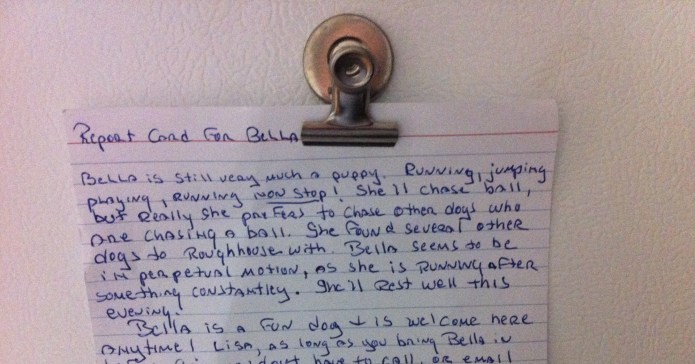 Report Card For Bella
Bella is still very much a puppy. Running, jumping
playing, running non stop! She'll chase ball,
but really she prefers to chase other dogs who
are chasing a ball. She found several other
dogs to roughhouse with. Bella seems to be
in perpetual motion, as she is running after
something constantley. She'll rest well this
evening.
Bella is a fun dog & is welcome here
anytime! Lisa, as long as you bring Bella in
don't have to call, or email